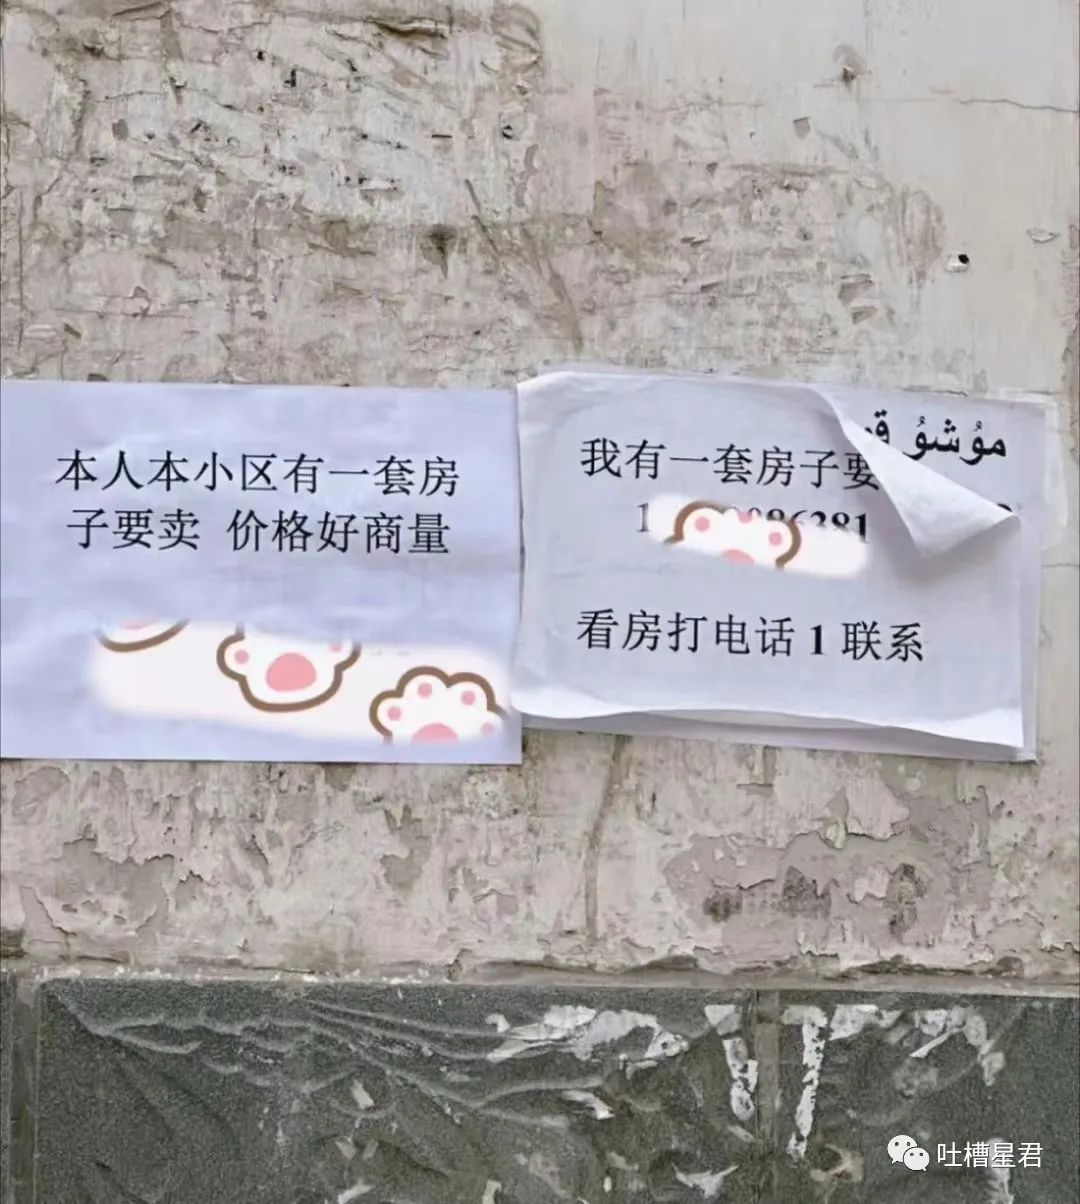 本人本小区有一套房
子要卖 价格好商量
مۇشۇ
我有一套房子要
看房打电话 1 联系
吐槽星君